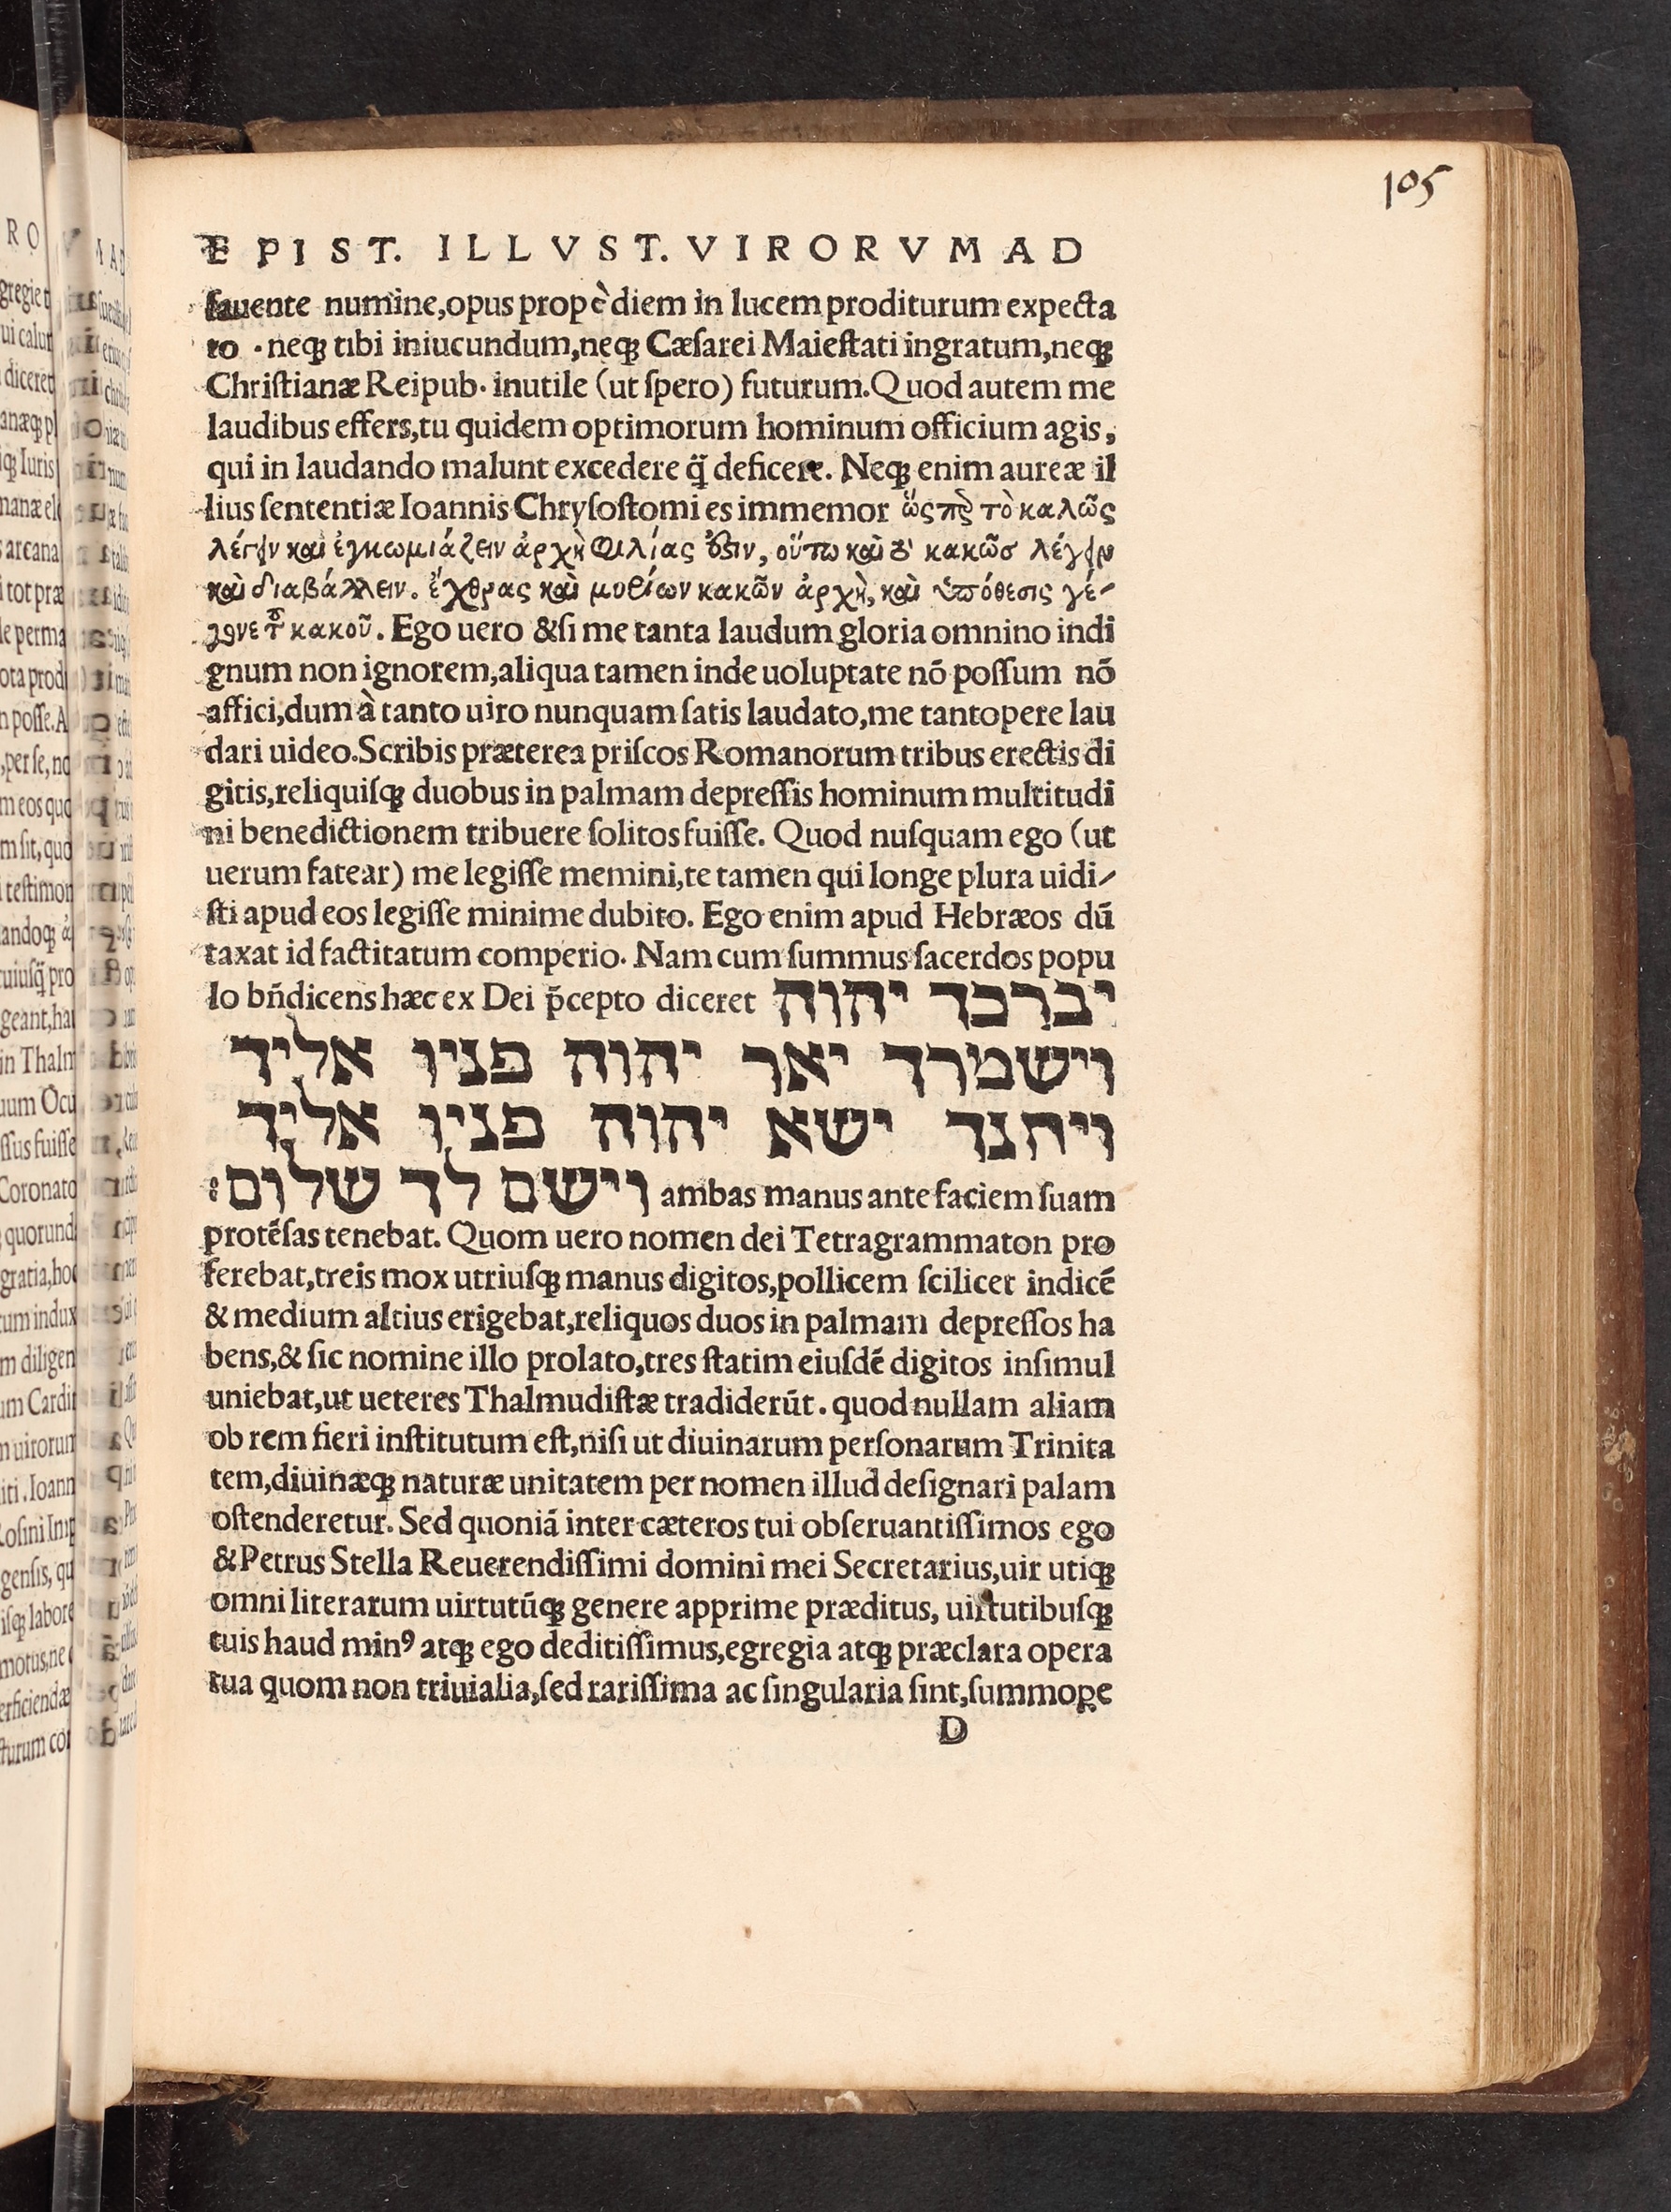 105
EPIST. ILLVST. VIRORVM AD
fauente numine, opus propè diem in lucem proditurum expecta
to . neq; tibi iniucundum, neq; Cæſarei Maieſtati ingratum, neq;
Chriſtianæ Reipub. inutile (ut ſpero) futurum. Quod autem me
laudibus effers, tu quidem optimorum hominum officium agis,
qui in laudando malunt excedere q̃ deficere. Neq; enim aureæ il
lius ſententiæ Ioannis Chryſoſtomi es immemor ὥςπερ τὸ καλῶς
λέγειν καὶ ἐγκωμιάζειν ἀρχὴ φιλίας ὅξιν, οὕτω καὶ τὸ κακῶσ λέγειν
καὶ διαβάλλειν. ἔχθρας καὶ μυρίων κακῶν ἀρχὴ, καὶ ὑπόθεσις γέ-
γονε τοῦ κακοῦ. Ego uero & ſi me tanta laudum gloria omnino indi
gnum non ignorem, aliqua tamen inde uoluptate nõ poſſum nõ
affici, dum à tanto uiro nunquam ſatis laudato, me tantopere lau
dari uideo. Scribis præterea priſcos Romanorum tribus erectis di
gitis, reliquiſq; duobus in palmam depreſſis hominum multitudi
ni benedictionem tribuere ſolitos fuiſſe. Quod nuſquam ego (ut
uerum fatear) me legiſſe memini, te tamen qui longe plura uidi-
ſti apud eos legiſſe minime dubito. Ego enim apud Hebræos dũ
taxat id factitatum comperio. Nam cum ſummus ſacerdos popu
lo bñdicens hæc ex Dei p̃cepto diceret יברכך יהוה
וישמרך יאר יהוה פניו אליך
ויחנך ישא יהוה פניו אליך
וישם לך שלום: ambas manus ante faciem ſuam
protẽſas tenebat. Quom uero nomen dei Tetragrammaton pro
ferebat, treis mox utriuſq; manus digitos, pollicem ſcilicet indicẽ
& medium altius erigebat, reliquos duos in palmam depreſſos ha
bens, & ſic nomine illo prolato, tres ſtatim eiuſdẽ digitos inſimul
uniebat, ut ueteres Thalmudiſtæ tradiderũt. quod nullam aliam
ob rem fieri inſtitutum eſt, niſi ut diuinarum perſonarum Trinita
tem, diuinæq; naturæ unitatem per nomen illud deſignari palam
oſtenderetur. Sed quoniã inter cæteros tui obſeruantiſſimos ego
& Petrus Stella Reuerendiſſimi domini mei Secretarius, uir utiq;
omni literarum uirtutũq; genere apprime præditus, uirtutibuſq;
tuis haud minꝰ atq; ego deditiſſimus, egregia atq; præclara opera
tua quom non triuialia, ſed rariſſima ac ſingularia ſint, ſummoꝑe
D